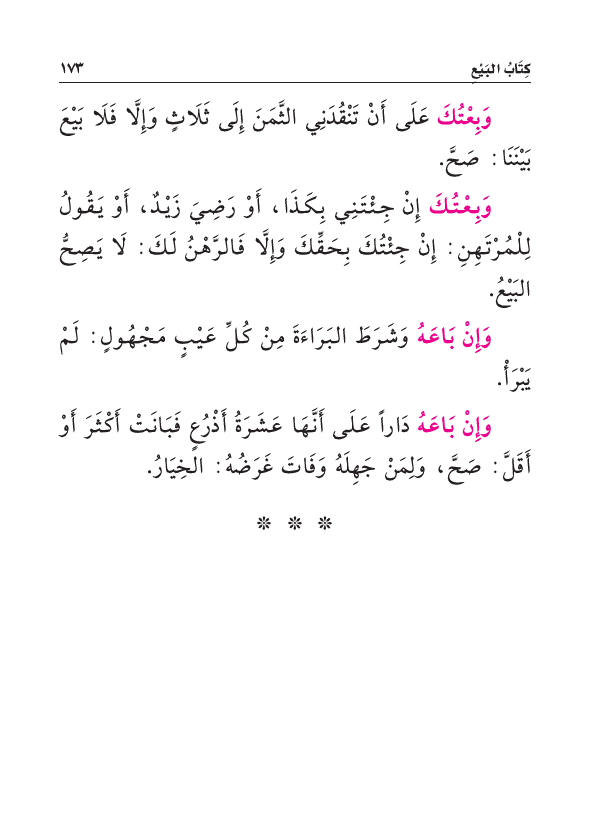 كِتَابُ البَيْعِ ١٧٣
وَبِعْتُكَ عَلَى أَنْ تَنْقُدَنِي الثَّمَنَ إِلَى ثَلَاثٍ وَإِلَّا فَلَا بَيْعَ
بَيْنَنَا: صَحَّ.
وَبِعْتُكَ إِنْ جِئْتَنِي بِكَذَا، أَوْ رَضِيَ زَيْدٌ، أَوْ يَقُولُ
لِلْمُرْتَهِنِ: إِنْ جِئْتُكَ بِحَقِّكَ وَإِلَّا فَالرَّهْنُ لَكَ: لَا يَصِحُّ
البَيْعُ.
وَإِنْ بَاعَهُ وَشَرَطَ البَرَاءَةَ مِنْ كُلِّ عَيْبٍ مَجْهُولٍ: لَمْ
يَبْرَأْ.
وَإِنْ بَاعَهُ دَاراً عَلَى أَنَّهَا عَشَرَةُ أَذْرُعٍ فَبَانَتْ أَكْثَرَ أَوْ
أَقَلَّ: صَحَّ، وَلِمَنْ جَهِلَهُ وَفَاتَ غَرَضُهُ: الخِيَارُ.
* * *